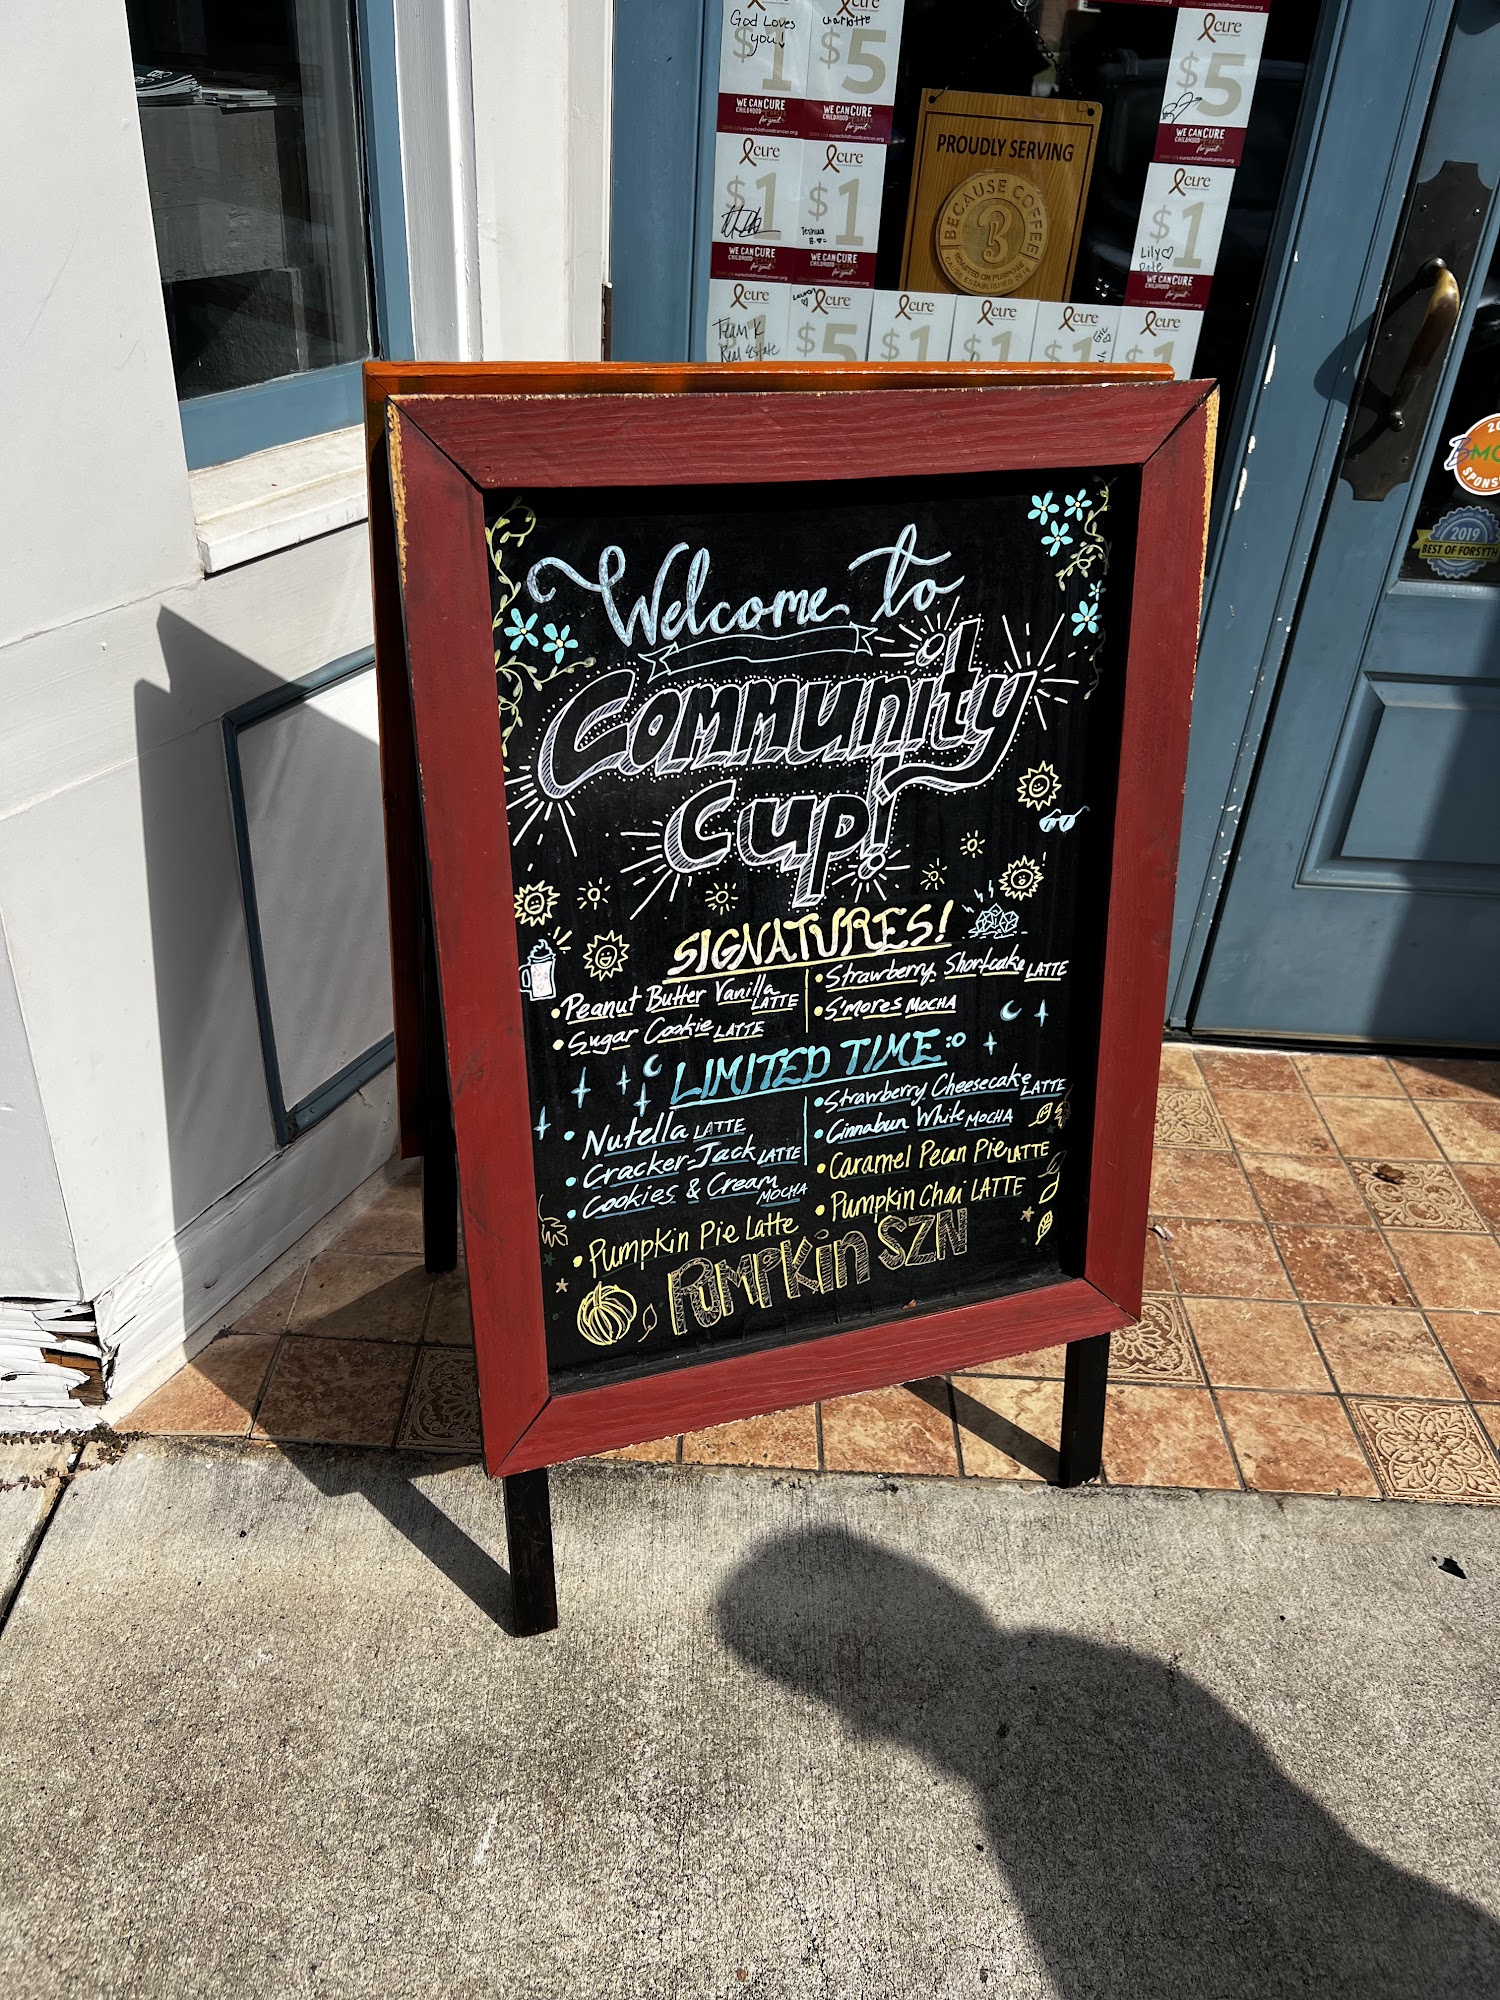 God Loves
you!
$1
WE CAN CURE
CHILDHOOD
for good
curechildhoodcancer.org
cure
Charlotte
$5
WE CAN CURE
CHILDHOOD
for good
curechildhoodcancer.org
cure
$5
WE CAN CURE
CHILDHOOD
for good
curechildhoodcancer.org
cure
$1
WE CAN CURE
CHILDHOOD
cure
$1
WE CAN CURE
CHILDHOOD
cure
$1
Lily
WE CAN CURE
CHILDHOOD
PROUDLY SERVING
BECAUSE COFFEE
B
ROASTED ON PURPOSE
CAUSE ESTABLISHED 2018
cure
$1
Team K
Real Estate
Lauren
cure
$5
cure
$1
cure
$1
cure
$1
cure
$1
SPONS
2019
BEST OF FORSYTH
Welcome to
Community
Cup!
SIGNATURES!
• Peanut Butter Vanilla LATTE
• Sugar Cookie LATTE
• Strawberry Shortcake LATTE
• S'mores MOCHA
LIMITED TIME:
• Nutella LATTE
• Cracker-Jack LATTE
• Cookies & Cream MOCHA
• Strawberry Cheesecake LATTE
• Cinnabun White MOCHA
• Caramel Pecan Pie LATTE
• Pumpkin Chai LATTE
• Pumpkin Pie Latte
PUMPKin SZN